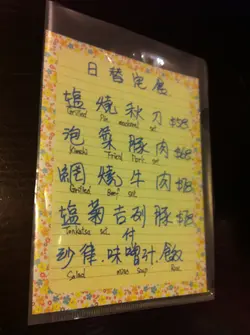 日替定食
塩燒秋刀
Grilled Pike mackerel set
泡菜豚肉
Kimchi Fried Pork set
網燒牛肉
Grilled Beef set
塩菊吉列豚
Tonkatsu set
付
沙律.味噌汁.飯
Salad miso soup Rice